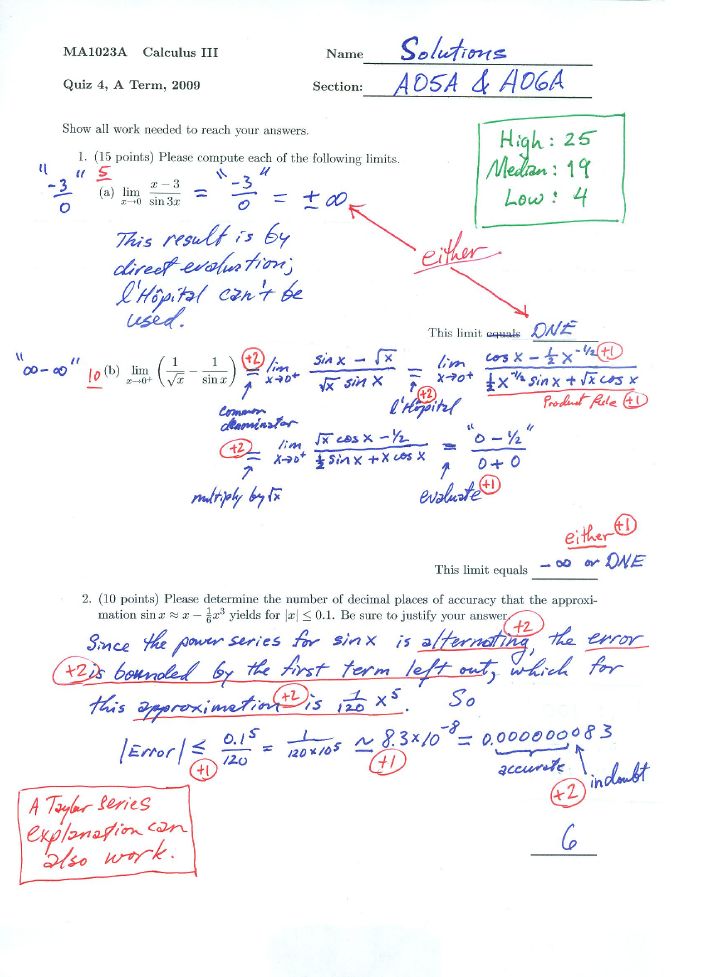 MA1023A Calculus III Name Solutions
Quiz 4, A Term, 2009 Section: A05A & A06A
Show all work needed to reach your answers.
High: 25
Median: 19
Low: 4
1. (15 points) Please compute each of the following limits.
"-3/0" 5 (a) lim x→0 (x − 3)/(sin 3x) = "-3/0" = ± ∞
either
This result is by
direct evaluation;
l'Hôpital can't be
used.
This limit equals DNE
"∞ - ∞" 10 (b) lim x→0+ (1/√x − 1/sin x) +2 = lim x→0+ (sin x − √x)/(√x sin x) = lim x→0+ (cos x − ½ x^-1/2)/(½ x^-1/2 sin x + √x cos x) +1
common denominator +2 l'Hôpital Product Rule +1
+2 = lim x→0+ (√x cos x − 1/2)/(½ sin x + x cos x) = "0 − ½"/(0 + 0)
multiply by √x evaluate +1
either +1
This limit equals − ∞ or DNE
2. (10 points) Please determine the number of decimal places of accuracy that the approxi-
mation sin x ≈ x − 1/6 x³ yields for |x| ≤ 0.1. Be sure to justify your answer.
+2
Since the power series for sin x is alternating, the error
+2 is bounded by the first term left out, which for
this approximation +2 is 1/120 x⁵. So
|Error| ≤ 0.1⁵/120 = 1/(120×10⁵) ≈ 8.3×10⁻⁸ = 0.000000083
+1 +1 accurate in doubt
+2
A Taylor series
explanation can
also work.
6